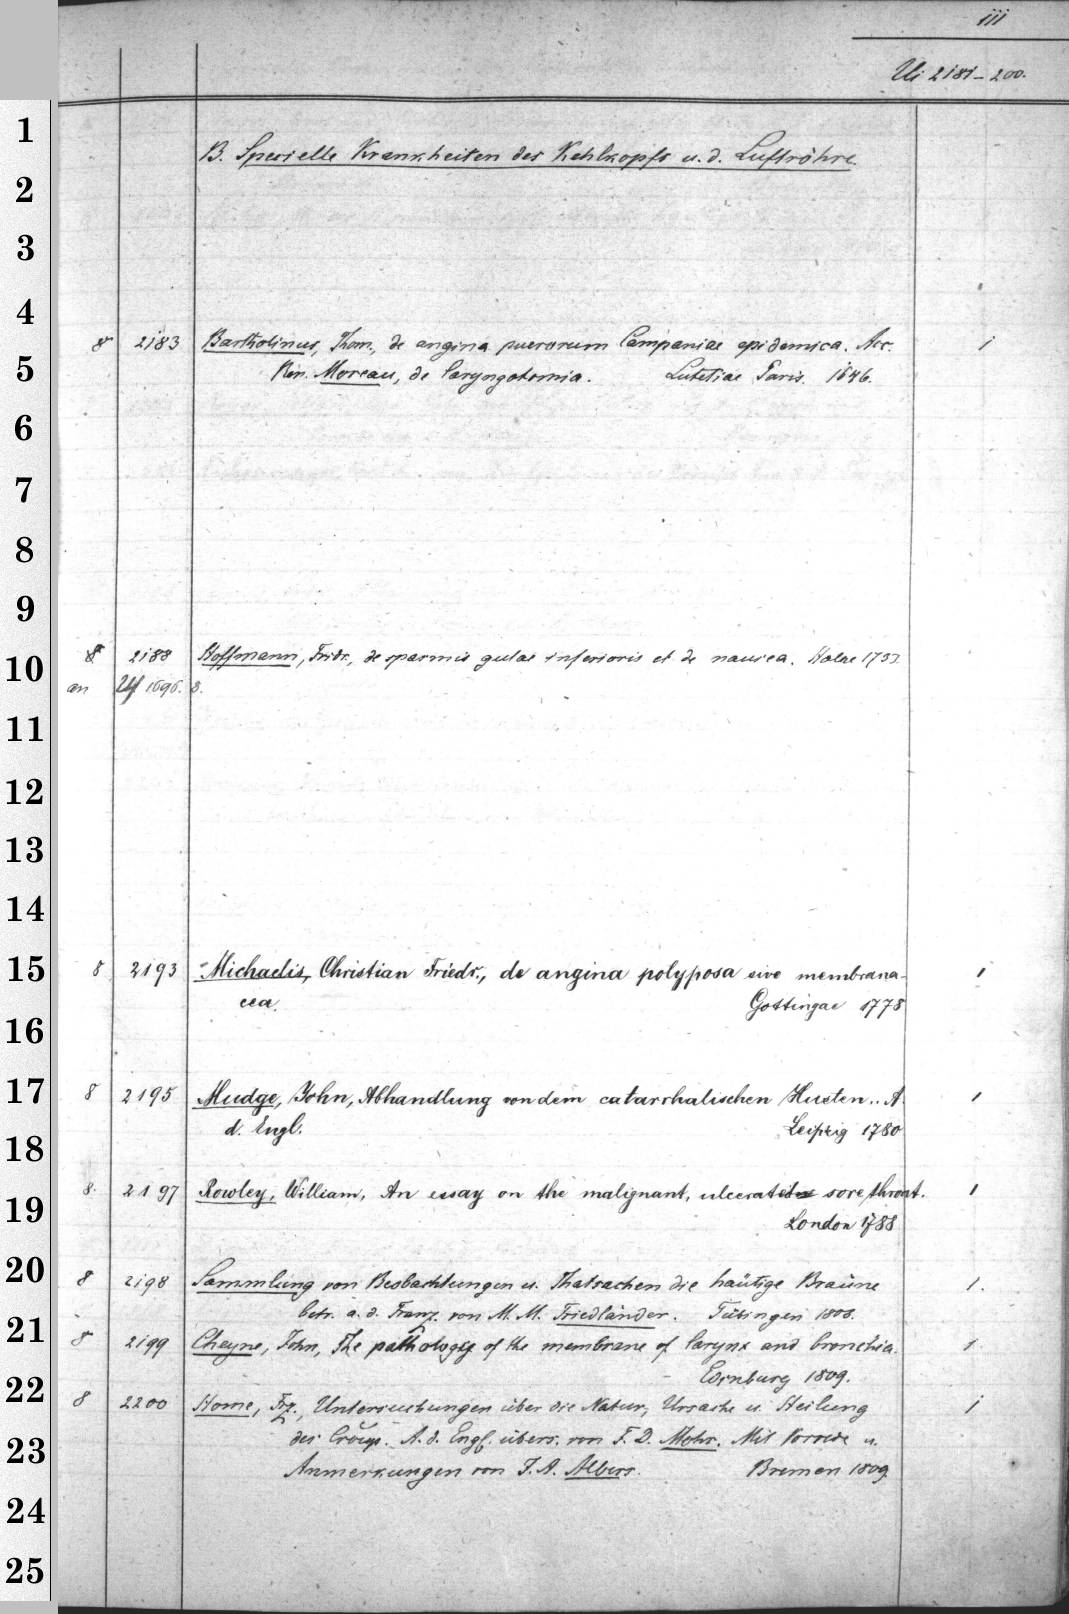 iii
Ui 2181-200.
B. Specielle Krankheiten des Kehlkopfs u. d. Luftröhre.
8 2183 Bartholinus, Thom., de angina puerorum Campaniae epidemica. Acc. 1
Ren. Moreau, de laryngotomia. Lutetiae Paris. 1646.
8 2188 Hoffmann, Fridr., de spasmis gulae inferioris et de nausea. Halae 1733
an Uf 1696. 8.
8 2193 Michaelis, Christian Friedr., de angina polyposa sive membrana- 1
cea. Gottingae 1778
8 2195 Mudge, John, Abhandlung von dem catarrhalischen Husten.. A. 1
d. Engl. Leipzig 1780
8. 2197 Rowley, William, An essay on the malignant, ulcerated sore throat. 1
London 1788
8 2198 Sammlung von Beobachtungen u. Thatsachen die häutige Bräune 1.
betr. a. d. Franz. von M. M. Friedländer. Tübingen 1808.
8 2199 Cheyne, John, The pathology of the membrane of larynx and bronchia. 1
Edinburg 1809.
8 2200 Home, Frz., Untersuchungen über die Natur, Ursache u. Heilung 1
des Croups. A. d. Engl. übers. von F. D. Mohr. Mit Vorrede u.
Anmerkungen von J. A. Albers. Bremen 1809.
1
2
3
4
5
6
7
8
9
10
11
12
13
14
15
16
17
18
19
20
21
22
23
24
25